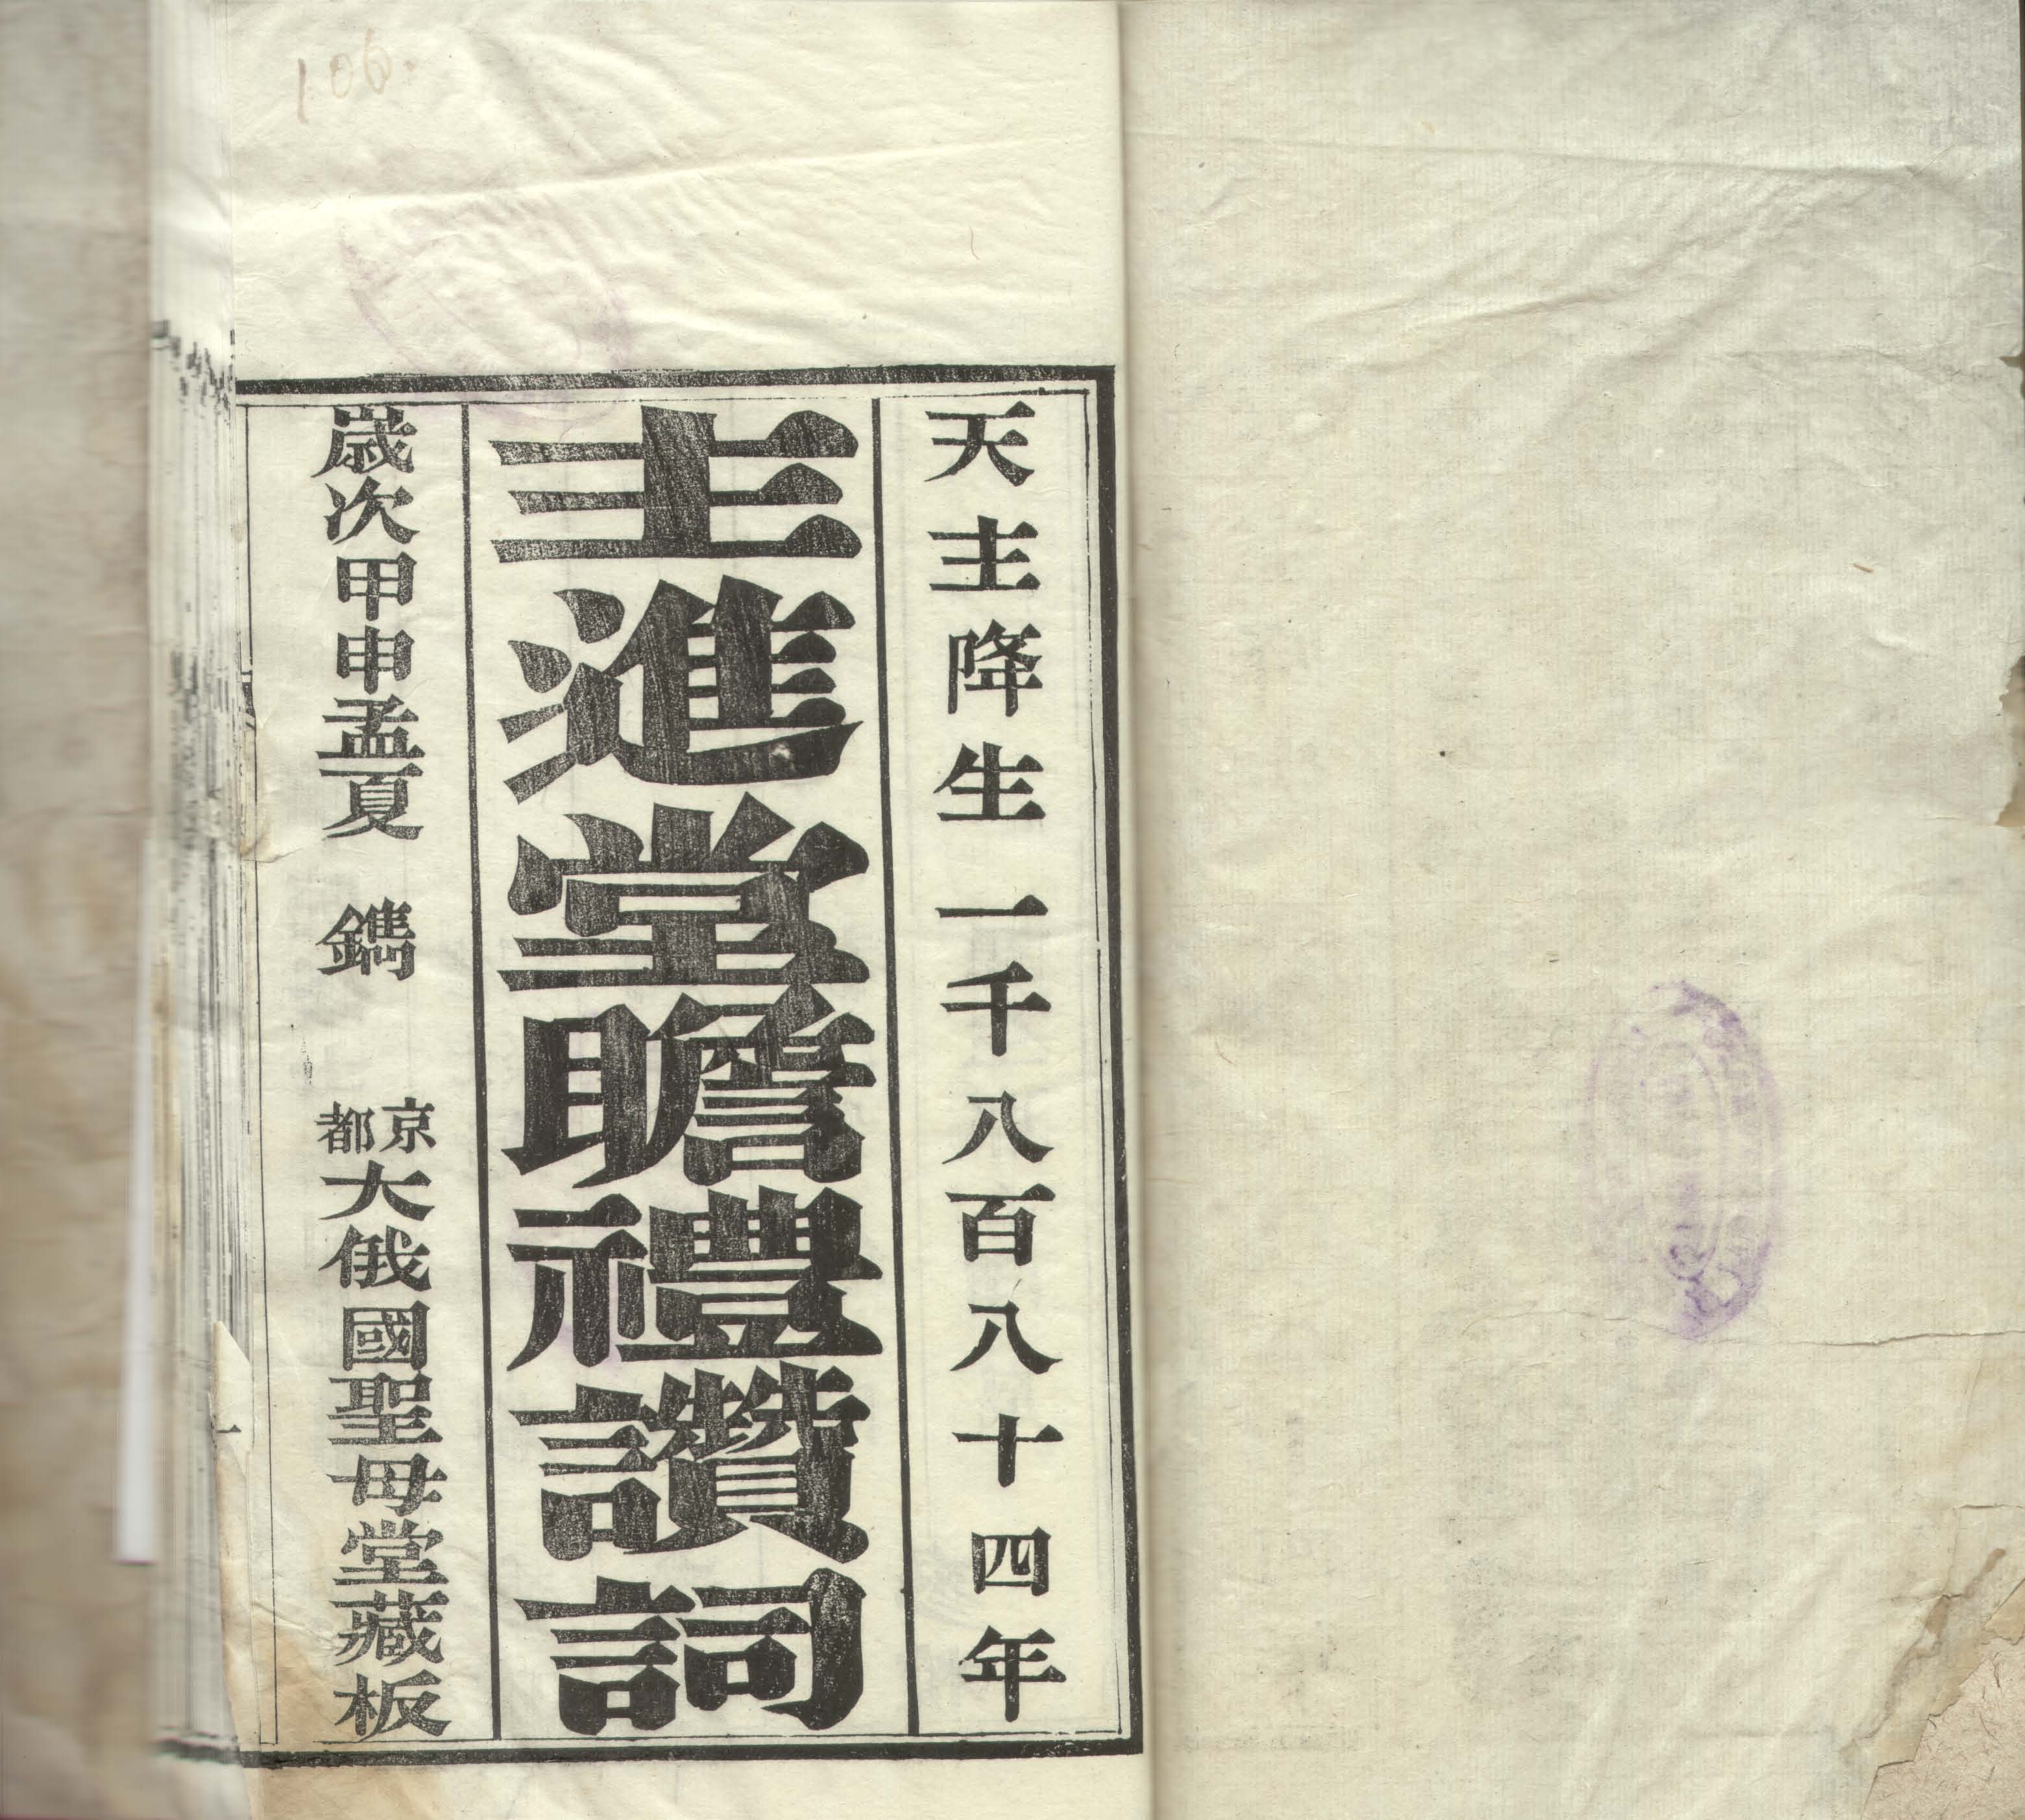 106.
天主降生一千八百八十四年
主進堂瞻禮讚詞
歲次甲申孟夏 鐫 京都大俄國聖母堂藏板